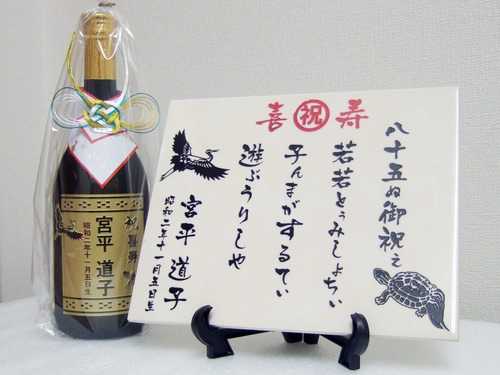 祝喜寿
宮平 道子
昭和二年十一月五日生
喜 祝 寿
八十五ぬ御祝え
若若とぅみしょちい
子んまがするてぃ
遊ぶうりしゃ
宮平 道子
昭和二年十一月五日生